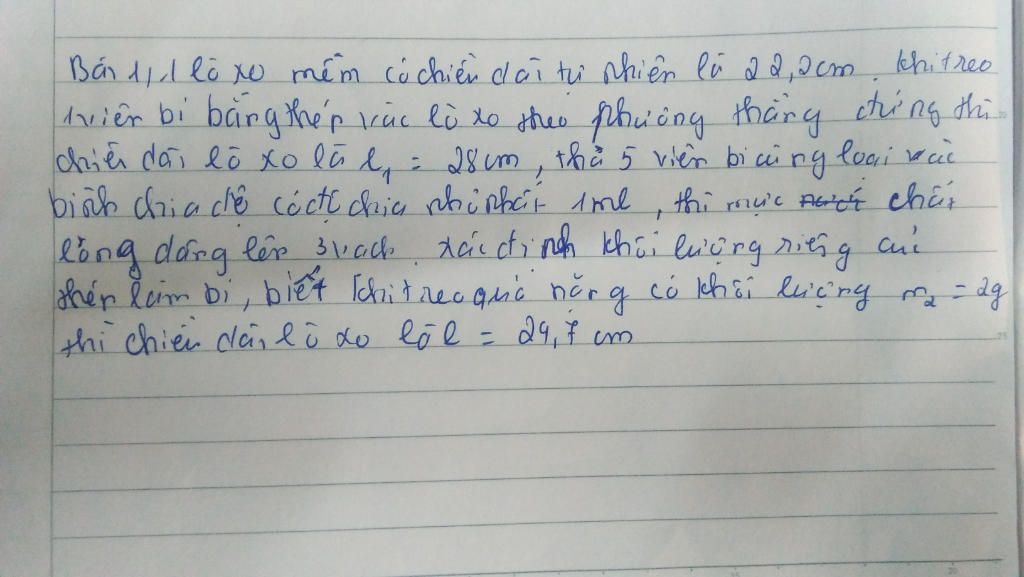 Bài 1, 1 lò xo mềm có chiều dài tự nhiên là 22,2cm. khi treo
1 viên bi bằng thép vào lò xo theo phương thẳng đứng thì
chiều dài lò xo là l₁ = 28cm, thả 5 viên bi cùng loại vào
bình chia độ có ĐCNN chia nhỏ nhất 1ml, thì mực chất
lỏng dâng lên 3 vạch. xác định khối lượng riêng của
thép làm bi, biết khi treo quả nặng có khối lượng m₂ = 2g
thì chiều dài lò xo là l = 24,7 cm